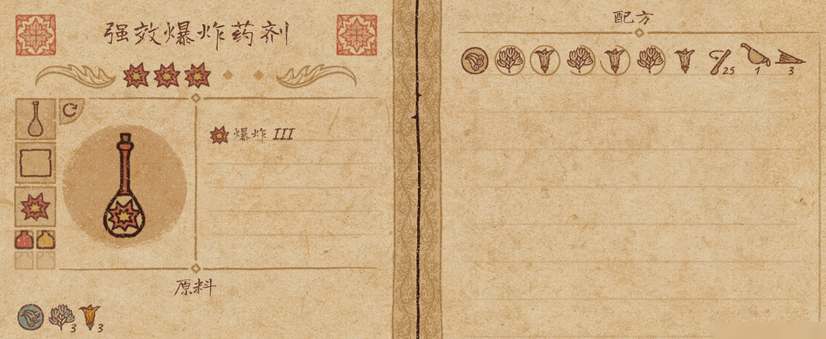 强效爆炸药剂
爆炸 III
原料
3 3
配方
25 1 3